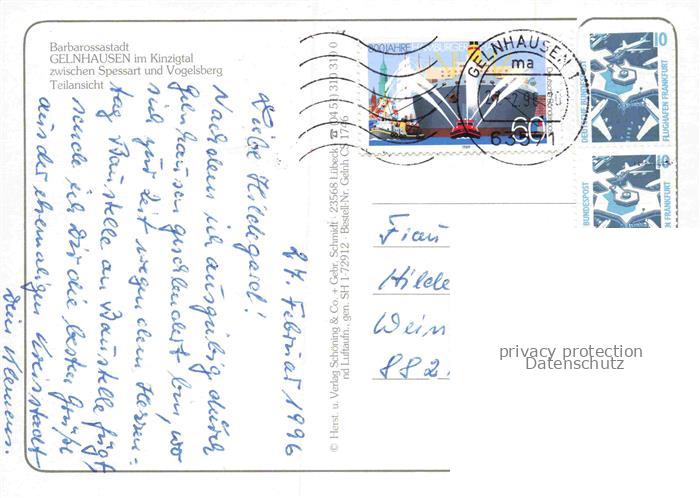 Barbarossastadt
GELNHAUSEN im Kinzigtal
zwischen Spessart und Vogelsberg
Teilansicht
24. Februar 1996
Liebe Hildegard!
Nachdem ich ausgiebig durch
Gelnhausen geschlendert bin, wo
sich zur Zeit wegen dem Hessen=
tag Baustelle an Baustelle fügt
sende ich Dir die besten Grüße
aus der ehemaligen Kreisstadt
Dein Klemens.
© Herst. u. Verlag Schöning & Co. + Gebr. Schmidt · 23568 Lübeck ☎ (04 51) 3 10 31 0
nd Luftaufn., gen. SH 1-72912 · Bestell-Nr. Gelnh CS 1746
800 JAHRE HAMBURGER
60
GELNHAUSEN 1
ma
63571
10
DEUTSCHE BUNDESPOST
FLUGHAFEN FRANKFURT
BUNDESPOST
EN FRANKFURT
Frau
Hilde
Wein
882.
privacy protection
Datenschutz